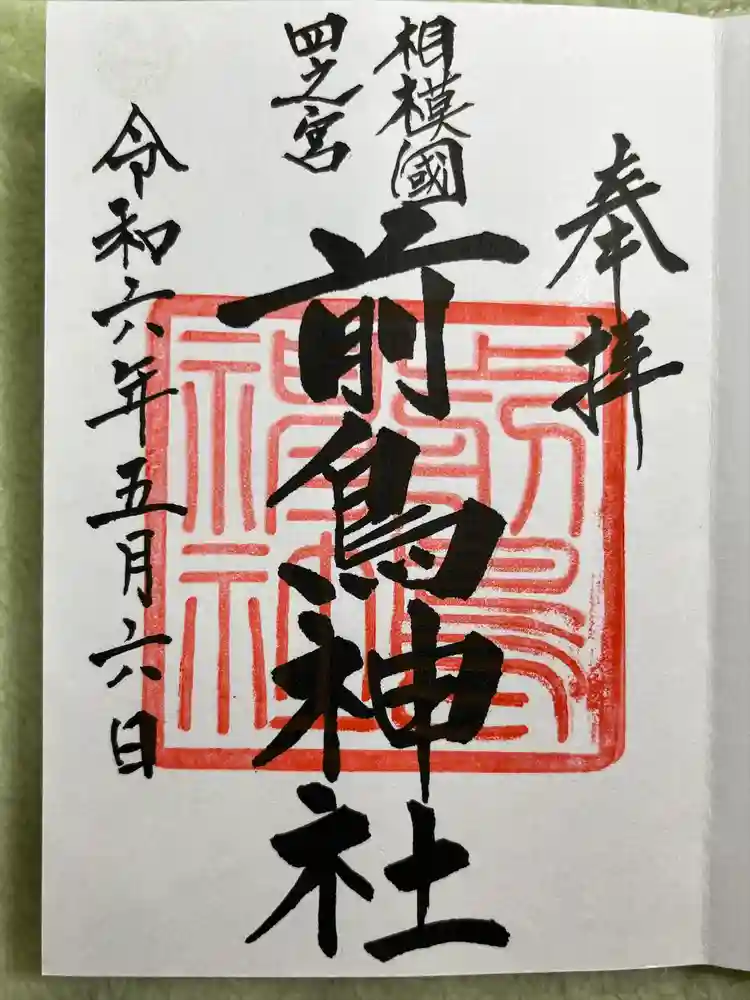 奉拝
相模國
四之宮
前鳥神社
令和六年五月六日